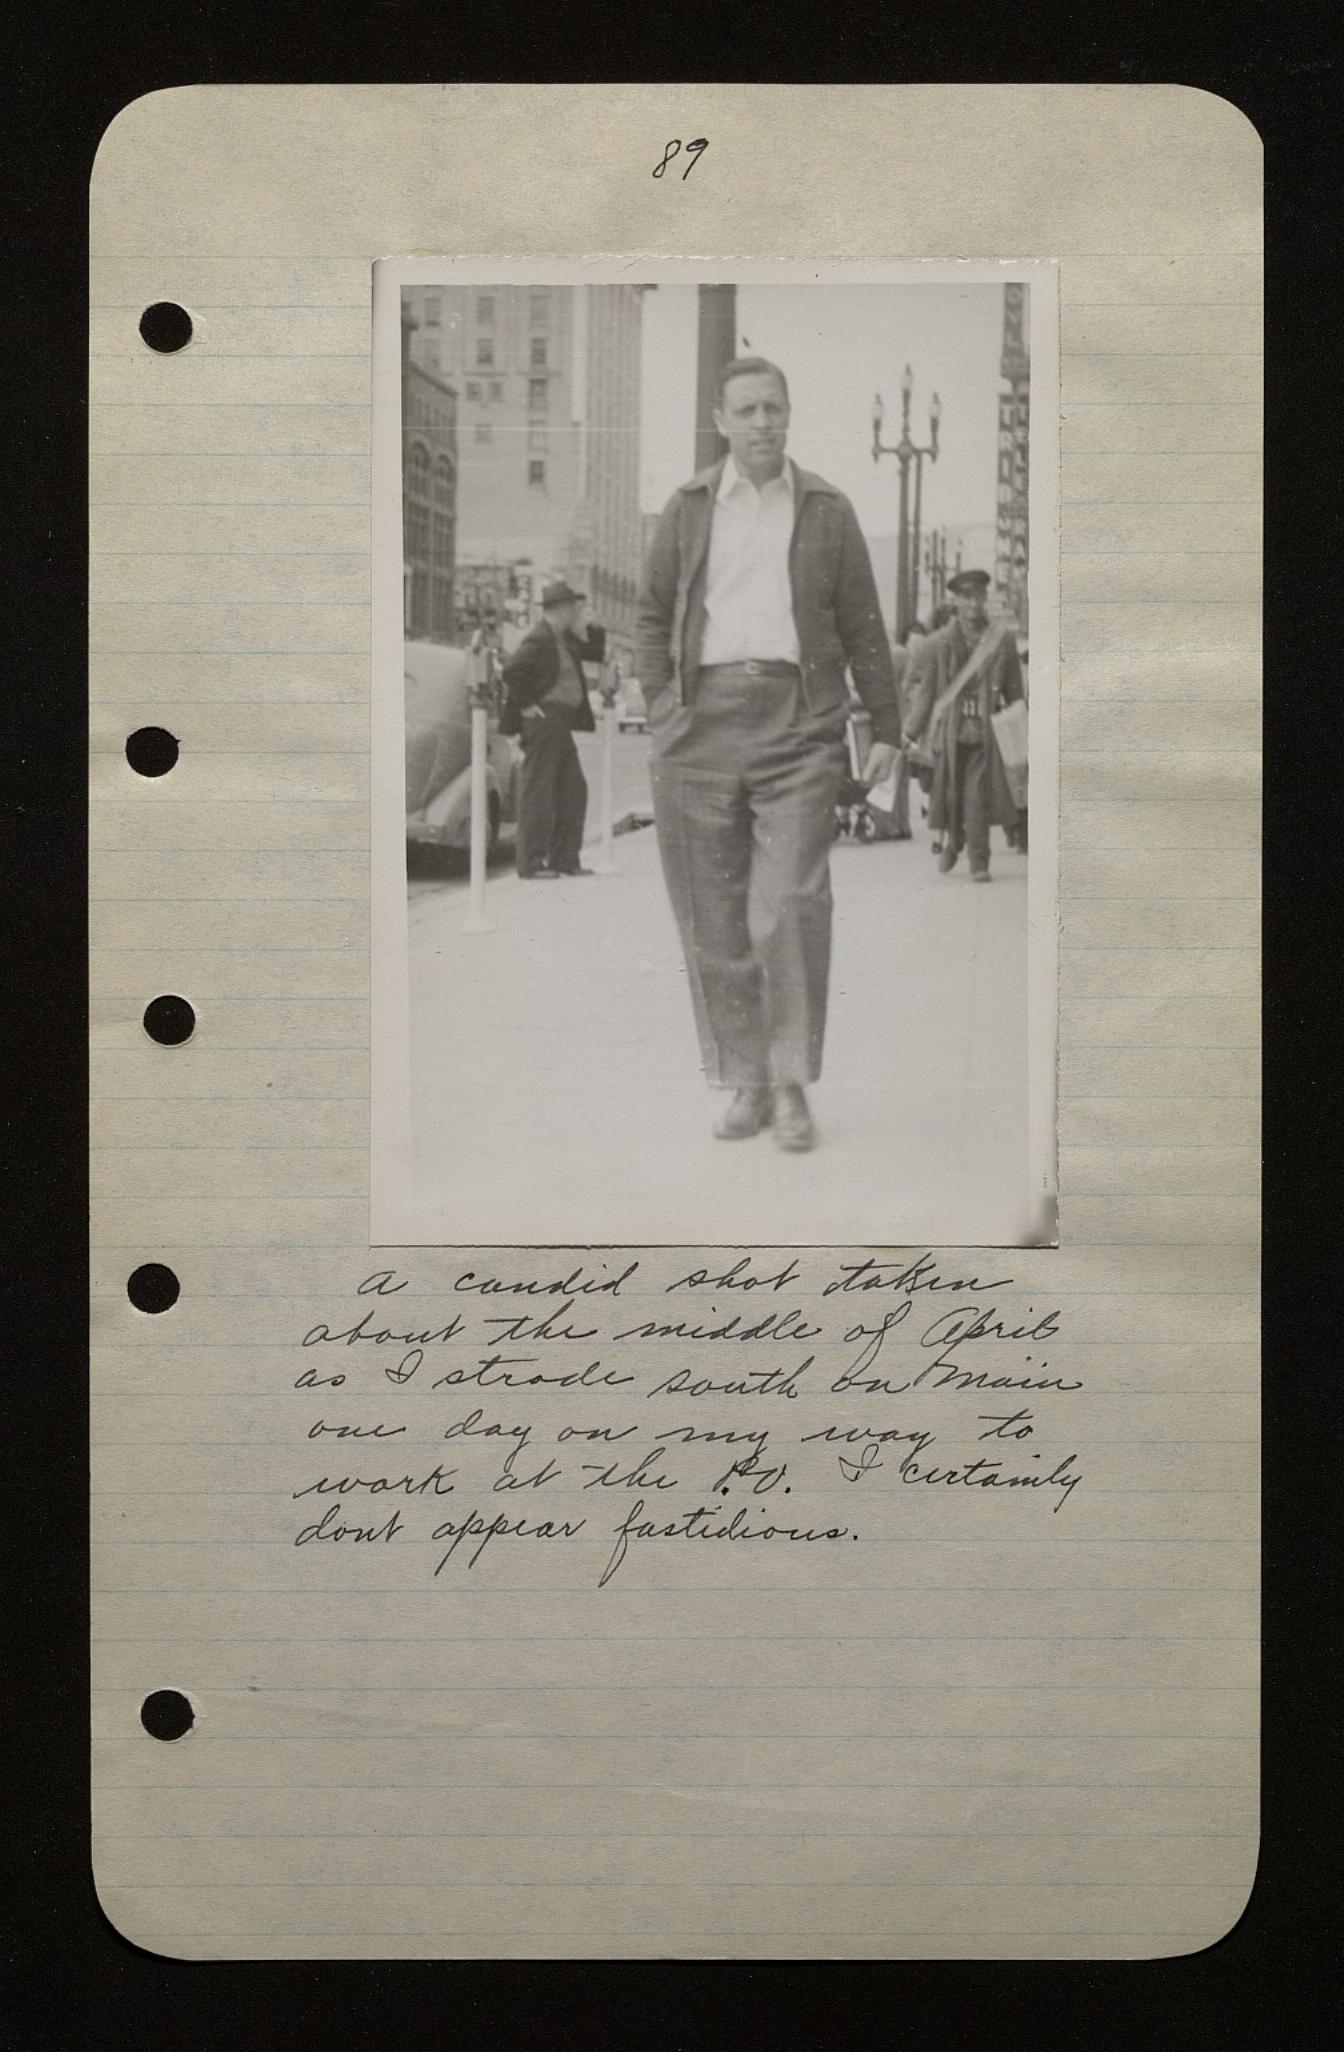 89
TRIBUNE
TELEGRAM
A candid shot taken
about the middle of April
as I strode south on Main
one day on my way to
work at the P.O. I certainly
dont appear fastidious.